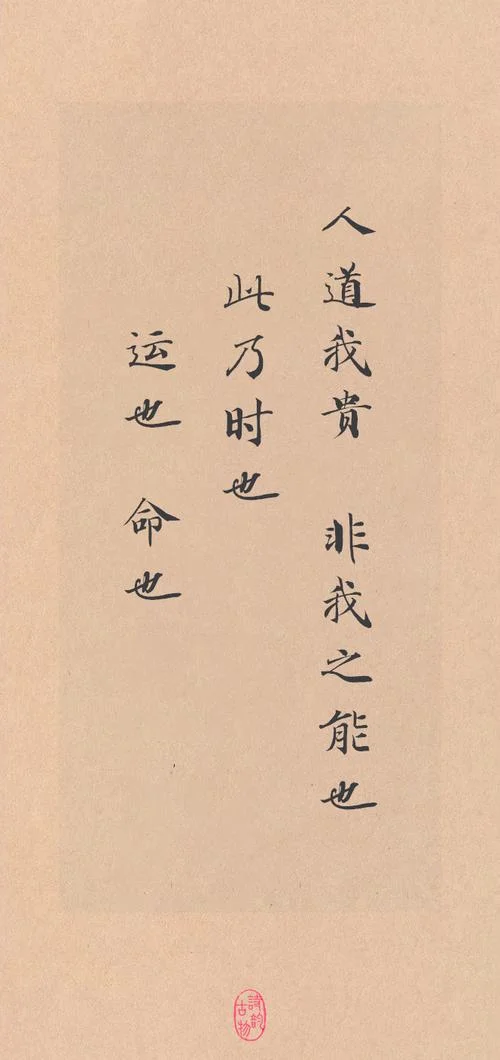 人道我貴 非我之能也
此乃时也
运也 命也
詩韵
古物